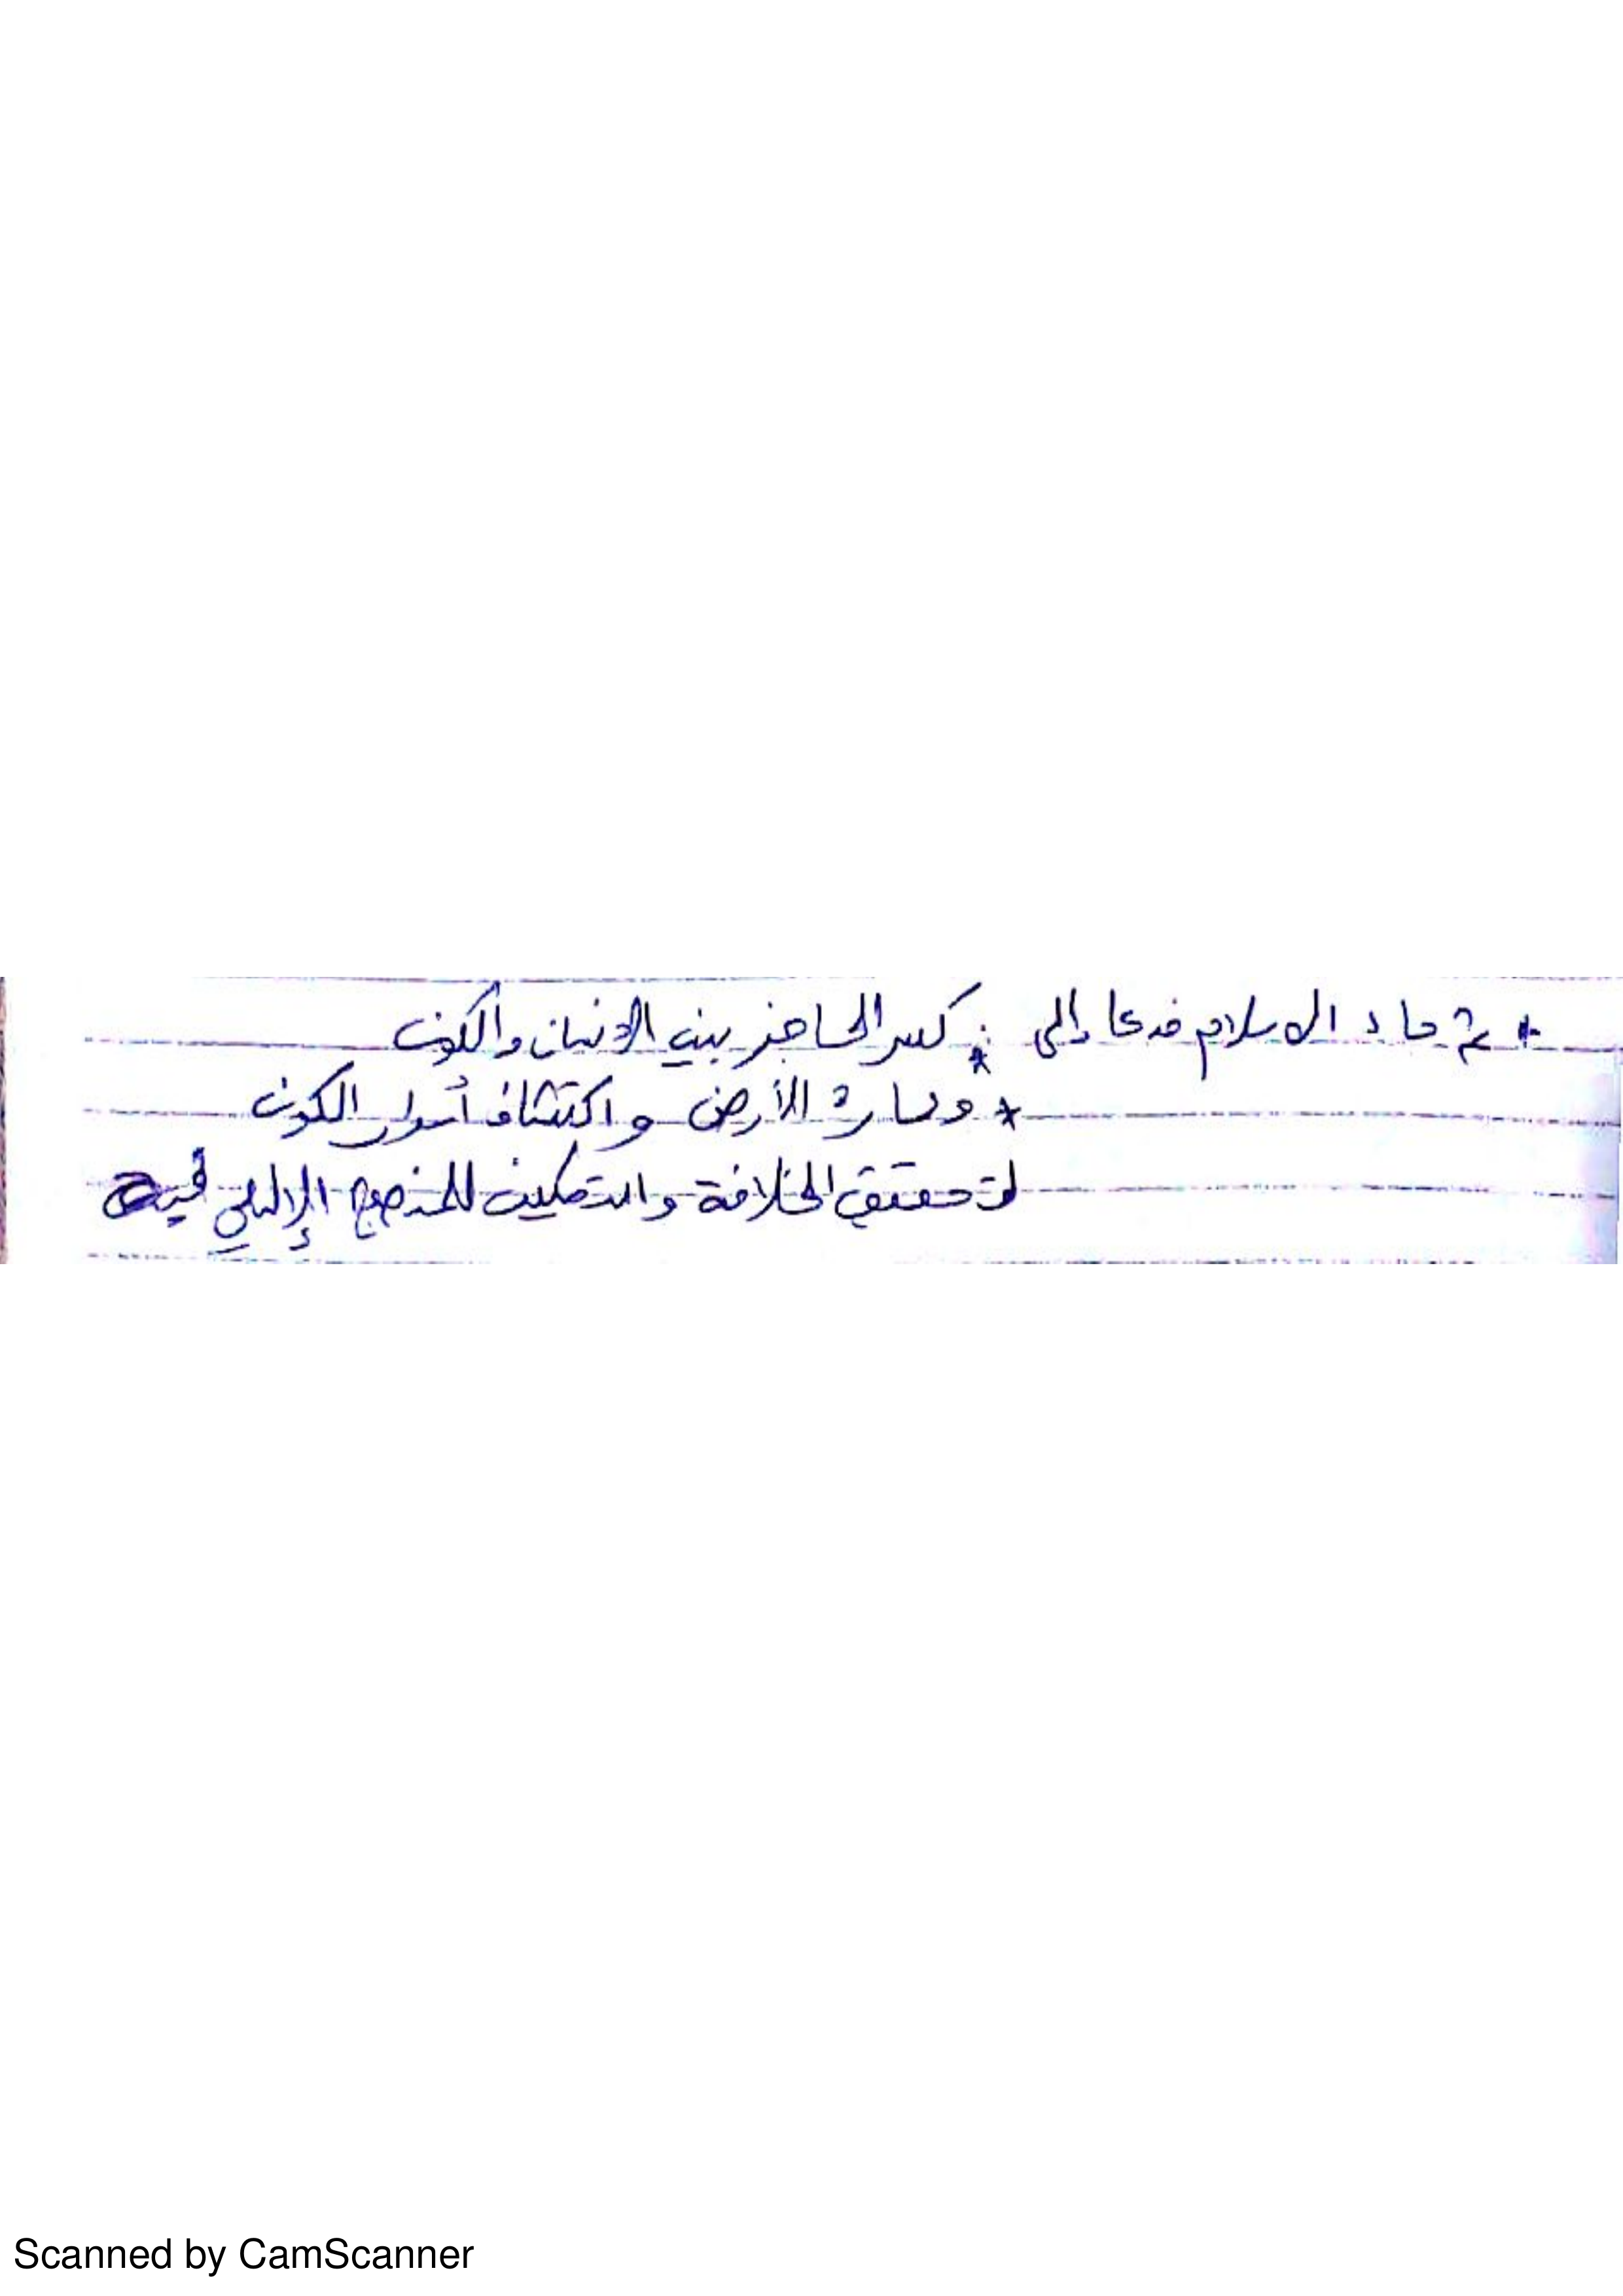 * ثم جاء الاسلام فدعا إلى : * كسر الحاجز بين الانسان والكون
* وعمارة الأرض واكتشاف أسرار الكون
لتحقيق الخلافة والتمكين للمنهج الإلهي فيه
Scanned by CamScanner